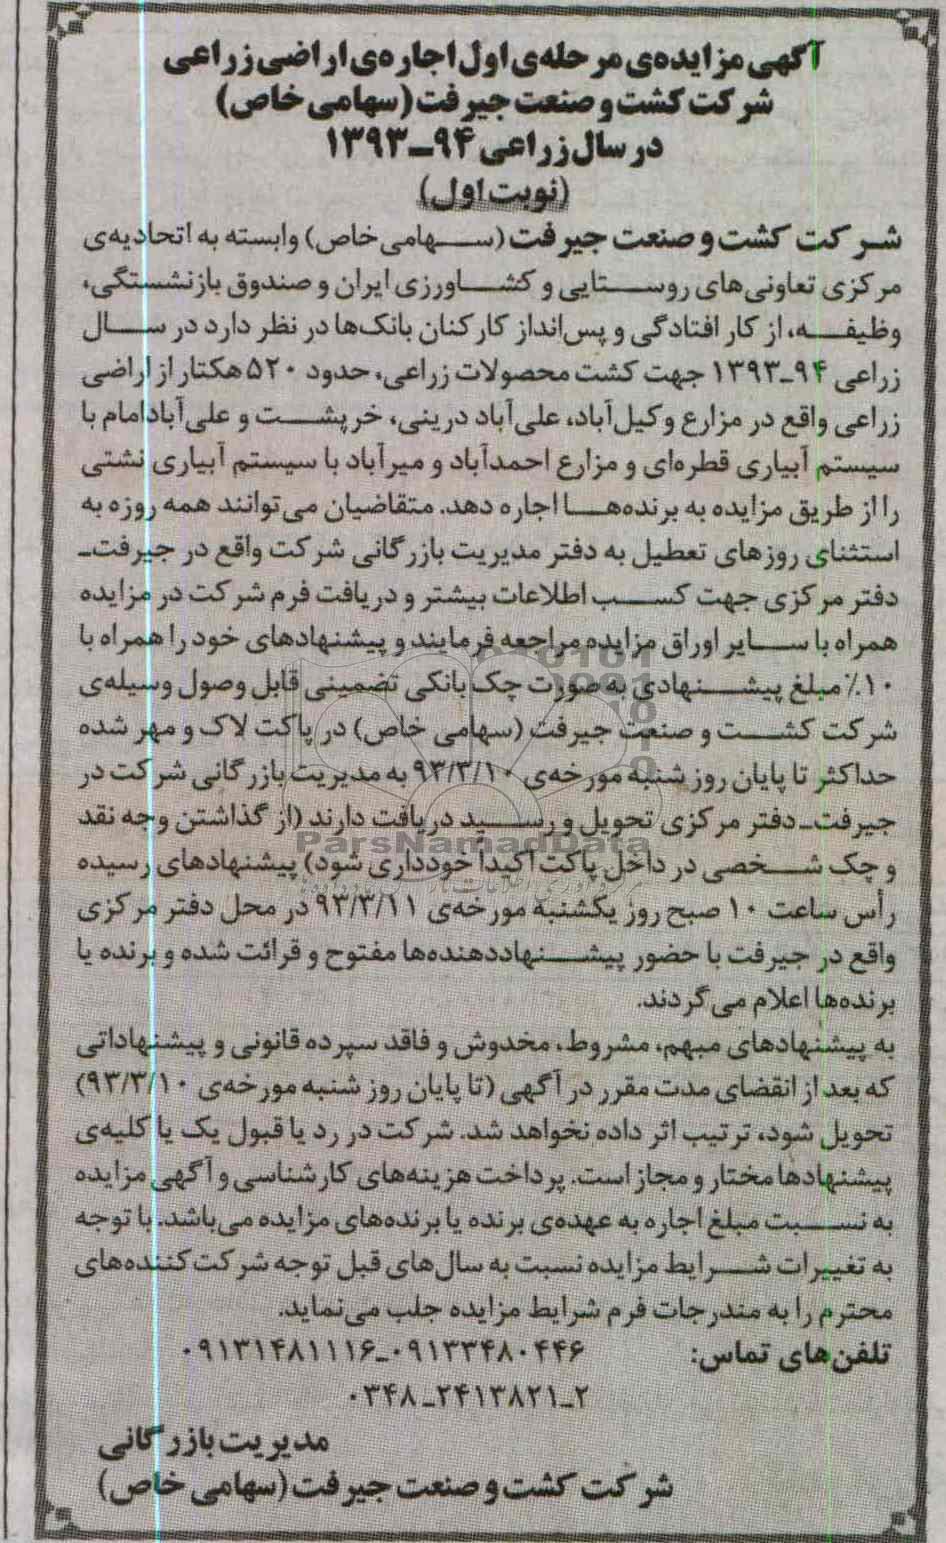 آگهی مزایده‌ی مرحله‌ی اول اجاره‌ی اراضی زراعی
شرکت کشت و صنعت جیرفت (سهامی خاص)
در سال زراعی ۹۴ـ۱۳۹۳
(نوبت اول)
شرکت کشت و صنعت جیرفت (سهامی خاص) وابسته به اتحادیه‌ی
مرکزی تعاونی‌های روستایی و کشاورزی ایران و صندوق بازنشستگی،
وظیفه، از کار افتادگی و پس‌انداز کارکنان بانک‌ها در نظر دارد در سال
زراعی ۹۴ـ۱۳۹۳ جهت کشت محصولات زراعی، حدود ۵۲۰ هکتار از اراضی
زراعی واقع در مزارع وکیل‌آباد، علی‌آباد درینی، خرپشت و علی‌آباد امام با
سیستم آبیاری قطره‌ای و مزارع احمدآباد و میرآباد با سیستم آبیاری نشتی
را از طریق مزایده به برنده‌ها اجاره دهد. متقاضیان می‌توانند همه روزه به
استثنای روزهای تعطیل به دفتر مدیریت بازرگانی شرکت واقع در جیرفت ـ
دفتر مرکزی جهت کسب اطلاعات بیشتر و دریافت فرم شرکت در مزایده
همراه با سایر اوراق مزایده مراجعه فرمایند و پیشنهادهای خود را همراه با
۱۰٪ مبلغ پیشنهادی به صورت چک بانکی تضمینی قابل وصول وسیله‌ی
شرکت کشت و صنعت جیرفت (سهامی خاص) در پاکت لاک و مهر شده
حداکثر تا پایان روز شنبه مورخه‌ی ۹۳/۳/۱۰ به مدیریت بازرگانی شرکت در
جیرفت ـ دفتر مرکزی تحویل و رسید دریافت دارند (از گذاشتن وجه نقد
و چک شخصی در داخل پاکت اکیداً خودداری شود) پیشنهادهای رسیده
رأس ساعت ۱۰ صبح روز یکشنبه مورخه‌ی ۹۳/۳/۱۱ در محل دفتر مرکزی
واقع در جیرفت با حضور پیشنهاددهنده‌ها مفتوح و قرائت شده و برنده یا
برنده‌ها اعلام می‌گردند.
به پیشنهادهای مبهم، مشروط، مخدوش و فاقد سپرده قانونی و پیشنهاداتی
که بعد از انقضای مدت مقرر در آگهی (تا پایان روز شنبه مورخه‌ی ۹۳/۳/۱۰)
تحویل شود، ترتیب اثر داده نخواهد شد. شرکت در رد یا قبول یک یا کلیه‌ی
پیشنهادها مختار و مجاز است. پرداخت هزینه‌های کارشناسی و آگهی مزایده
به نسبت مبلغ اجاره به عهده‌ی برنده یا برنده‌های مزایده می‌باشد. با توجه
به تغییرات شرایط مزایده نسبت به سال‌های قبل توجه شرکت‌کننده‌های
محترم را به مندرجات فرم شرایط مزایده جلب می‌نماید.
تلفن‌های تماس: ۰۹۱۳۳۴۸۰۴۴۶ـ۰۹۱۳۱۴۸۱۱۱۶
۰۳۴۸ـ۲۴۱۳۸۲۱ـ۲
مدیریت بازرگانی
شرکت کشت و صنعت جیرفت (سهامی خاص)
ParsNamadData